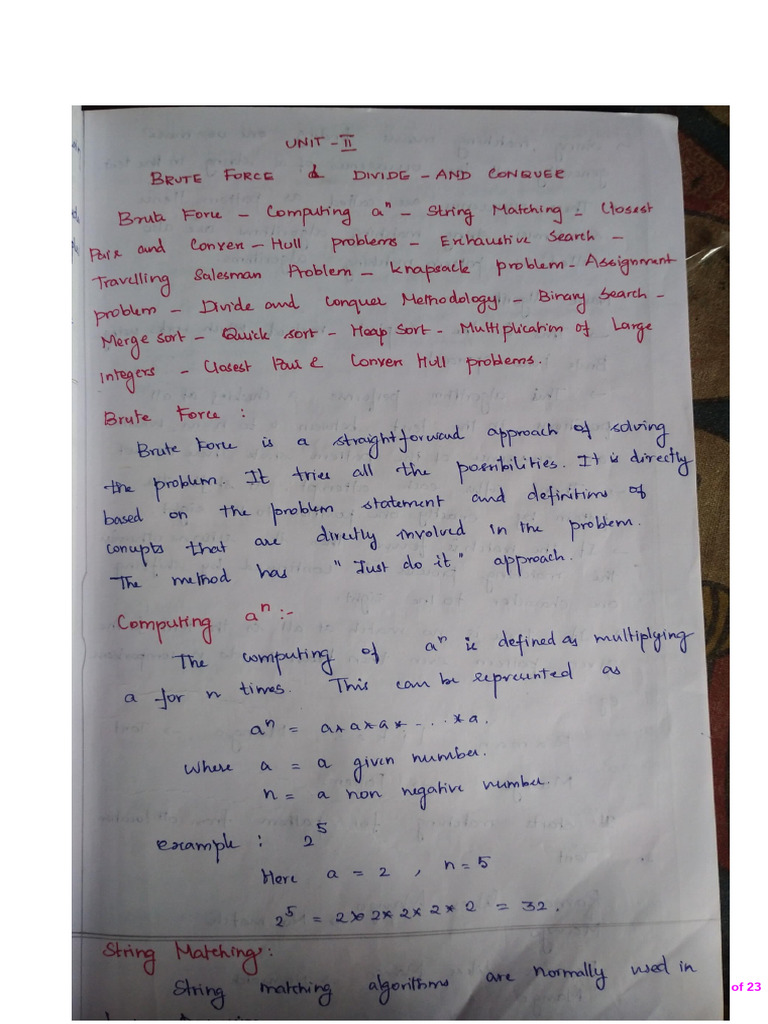 UNIT - II
BRUTE FORCE & DIVIDE - AND CONQUER
Brute Force - Computing aⁿ - String Matching - Closest
Pair and Convex - Hull problems - Exhaustive Search -
Travelling Salesman Problem - Knapsack problem - Assignment
problem - Divide and Conquer Methodology - Binary Search -
Merge sort - Quick sort - Heap Sort - Multiplication of Large
Integers - Closest Pair & Convex Hull problems.
Brute Force :
Brute Force is a straightforward approach of solving
the problem. It tries all the possibilities. It is directly
based on the problem statement and definitions of
concepts that are directly involved in the problem.
The method has "Just do it" approach.
Computing aⁿ :-
The computing of aⁿ is defined as multiplying
a for n times. This can be represented as
aⁿ = a*a*a*-...*a.
where a = a given number.
n = a non negative number.
example : 2⁵
Here a = 2 , n = 5
2⁵ = 2*2*2*2*2 = 32.
String Matching :
String matching algorithms are normally used in
of 23